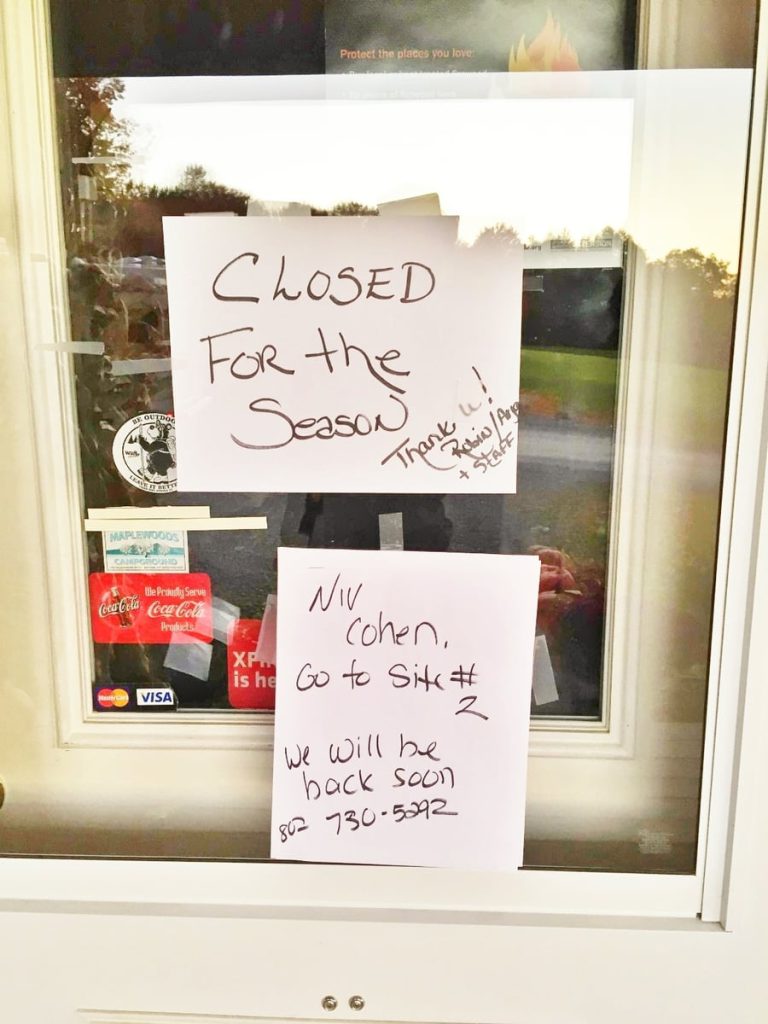 Protect the places you love:
CLOSED
FOR the
SEASON
Thank u!
Robin/
+ STAFF
BE OUTDOO
LEAVE IT BETT
MAPLEWOODS
CAMPGROUND
We Proudly Serve
Coca-Cola
Coca-Cola
Products.
is he
MasterCard
VISA
Niv
Cohen,
Go to Site #
2
We will be
back soon
802 730-5292